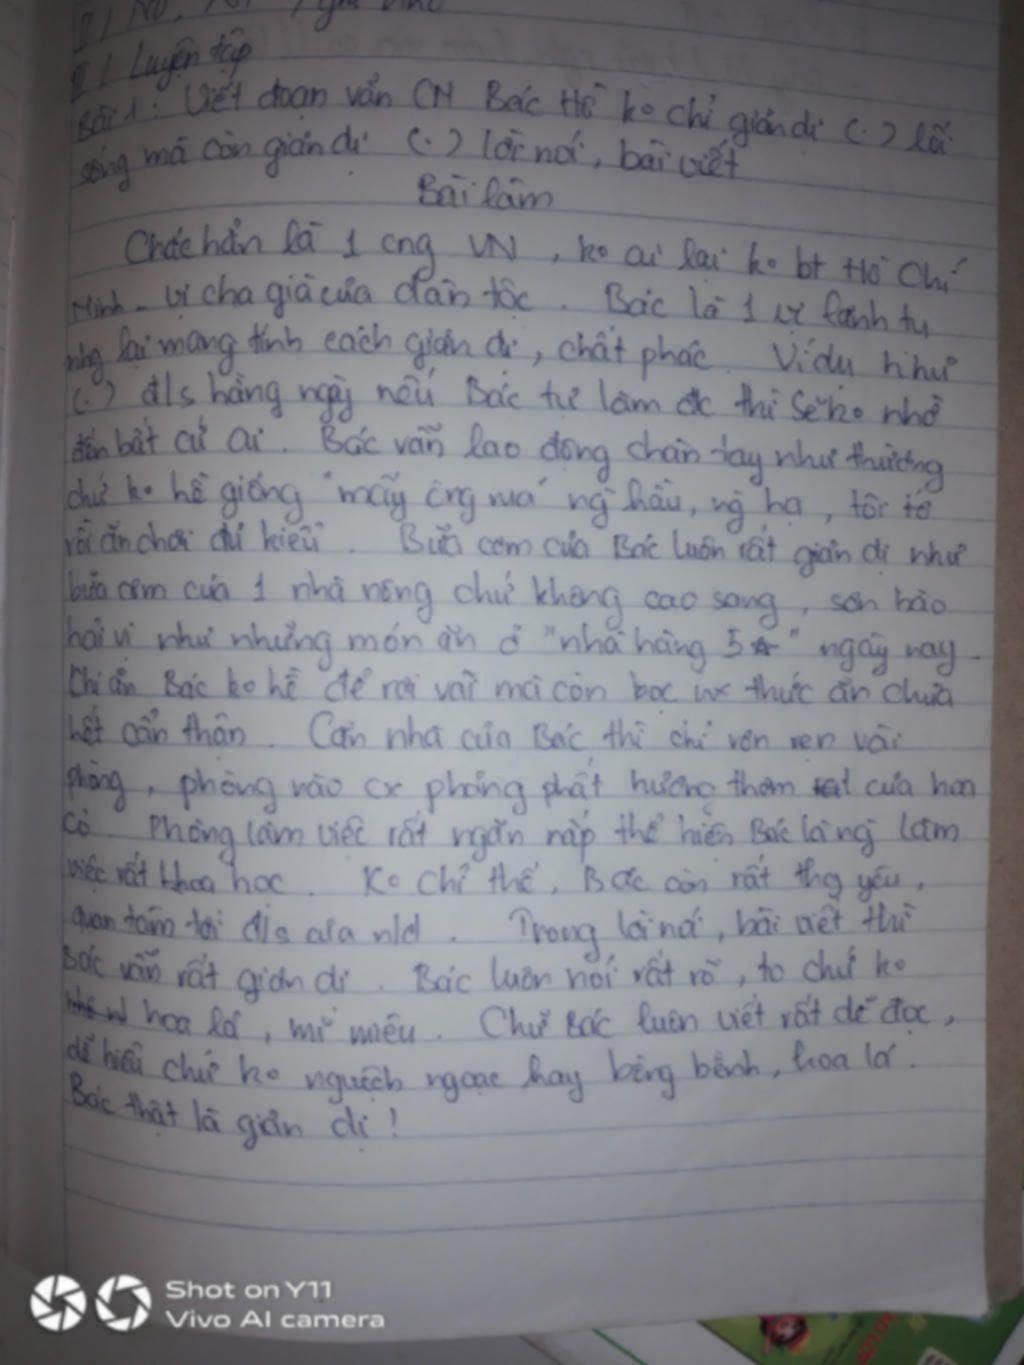 II / Luyện tập
Bài 1: Viết đoạn văn CM Bác Hồ ko chỉ giản dị (.) lối
sống mà còn giản dị (.) lời nói, bài viết
Bài làm
Chắc hẳn là 1 cng VN, ko ai lại ko bt Hồ Chí
Minh - vị cha già của dân tộc. Bác là 1 vị lãnh tụ
nhg lại mang tính cách giản dị, chất phác. Ví dụ như
(.) đ/s hằng ngày nếu Bác tự làm đc thì sẽ ko nhờ
đến bất cứ ai. Bác vẫn lao động chân tay như thường
chứ ko hề giống "mấy ông vua" ng hầu, ng hạ, tôi tớ
rồi ăn chơi đủ kiểu. Bữa cơm của Bác luôn rất giản dị như
bữa cơm của 1 nhà nông chứ không cao sang, sơn hào
hải vị như những món ăn ở "nhà hàng 5☆" ngày nay.
Khi ăn Bác ko hề để rơi vãi mà còn bọc thức ăn chưa
hết cẩn thận. Căn nhà của Bác thì chỉ vỏn vẹn vài
phòng, phòng nào cx phảng phất hương thơm của hoa
cỏ. Phòng làm việc rất ngăn nắp thể hiện Bác là ng làm
việc rất khoa học. Ko chỉ thế, Bác còn rất thg yêu,
quan tâm tới đ/s của nld. Trong lời nói, bài viết thì
Bác vẫn rất giản dị. Bác luôn nói rất rõ, to chứ ko
hoa lá, mĩ miều. Chữ Bác luôn viết rất dễ đọc,
dễ hiểu chứ ko nguệch ngoạc hay bồng bềnh, hoa lá.
Bác thật là giản dị!
Shot on Y11
Vivo AI camera